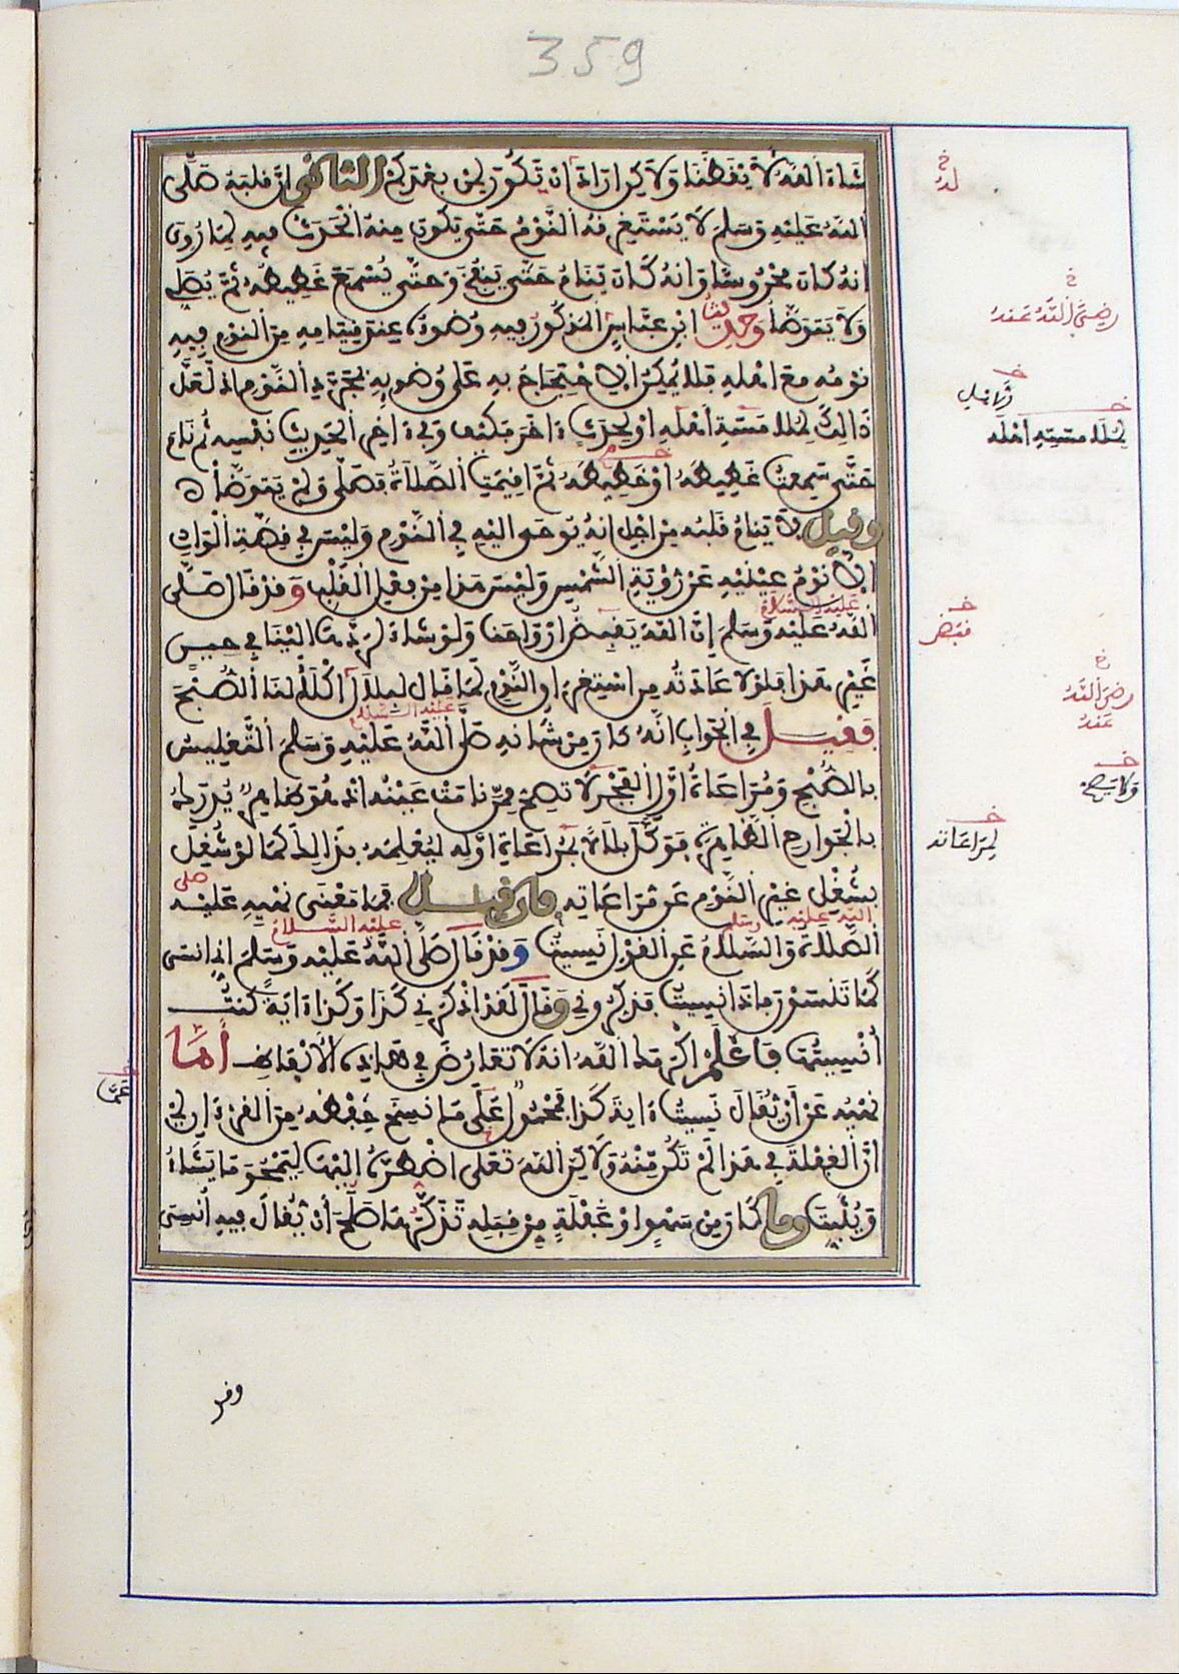 359
شَاءَ اللَّهُ لَأَيْقَظَنَا وَلَاكِنْ أَرَادَ أَنْ تَكُونَ لِمَنْ بَعْدَكُمْ الثَّانِي أَنَّ قَلْبَهُ صَلَّى
اللَّهُ عَلَيْهِ وَسَلَّمَ لَا يَسْتَغْرِقُهُ النَّوْمُ حَتَّى يَكُونَ مِنْهُ الْحَدَثُ فِيهِ لِمَا رُوِيَ
أَنَّهُ كَانَ مَحْرُوسًا وَأَنَّهُ كَانَ يَنَامُ حَتَّى يَنْفُخَ وَحَتَّى يُسْمَعَ غَطِيطُهُ ثُمَّ يُصَلِّ
وَلَا يَتَوَضَّأُ وَحَدِيثُ ابْنِ عَبَّاسٍ الْمَذْكُورُ فِيهِ وُضُوءُهُ عِنْدَ قِيَامِهِ مِنَ النَّوْمِ فِيهِ
نَوْمُهُ مَعَ أَهْلِهِ فَلَا يُمْكِنُ الِاحْتِجَاجُ بِهِ عَلَى وُضُوئِهِ بِمُجَرَّدِ النَّوْمِ إِذْ لَعَلَّ
ذَالِكَ لِمُلَامَسَةِ أَهْلِهِ أَوْ لِحَدَثٍ ءَاخَرَ فَكَيْفَ وَفِي ءَاخِرِ الْحَدِيثِ نَفْسِهِ ثُمَّ نَامَ
حَتَّى سَمِعْتُ غَطِيطَهُ أَوْ خَطِيطَهُ ثُمَّ أُقِيمَتِ الصَّلَاةُ فَصَلَّى وَلَمْ يَتَوَضَّأْ
وقيل لَا يَنَامُ قَلْبُهُ مِنْ أَجْلِ أَنَّهُ يُوحَى إِلَيْهِ فِي النَّوْمِ وَلَيْسَ فِي قِصَّةِ الْوَادِ
إِلَّا نَوْمُ عَيْنَيْهِ عَنْ رُؤْيَةِ الشَّمْسِ وَلَيْسَ هَذَا مِنْ فِعْلِ الْقَلْبِ وَقَدْ قَالَ صَلَّى
عَلَيْهِ السَّلَامُ
اللَّهُ عَلَيْهِ وَسَلَّمَ إِنَّ اللَّهَ يَقْبِضُ أَرْوَاحَنَا وَلَوْ شَاءَ لَرَدَّهَا إِلَيْنَا فِي حِينٍ
غَيْرِ هَذَا فَلَوْلَا عَادَتُهُ مِنِ اسْتِغْرَاقِ النَّوْمِ لَمَا قَالَ لِبِلَالٍ اكْلَأْ لَنَا الصُّبْحَ
عَلَيْهِ السَّلَامُ
فَقِيلَ فِي الْجَوَابِ إِنَّهُ كَانَ مِنْ شَأْنِهِ صَلَّى اللَّهُ عَلَيْهِ وَسَلَّمَ التَّغْلِيسُ
بِالصُّبْحِ وَمُرَاعَاةُ أَوَّلِ الْفَجْرِ لَا تَصِحُّ مِمَّنْ نَامَتْ عَيْنُهُ إِذْ هُوَ ظَاهِرٌ يُدْرَكُ
بِالْجَوَارِحِ الظَّاهِرَةِ فَوَكَّلَ بِلَالًا بِمُرَاعَاةِ أَوَّلِهِ لِيُعْلِمَهُ بِذَالِكَ كَمَا لَوْ شُغِلَ
بِشُغْلٍ غَيْرِ النَّوْمِ عَنْ مُرَاعَاتِهِ فإن قيل فَمَا مَعْنَى نَهْيِهِ عَلَيْهِ صلى
الله عليه وسلم
الصَّلَاةُ وَالسَّلَامُ عَنِ الْقَوْلِ نَسِيتُ وَقَدْ قَالَ صَلَّى اللَّهُ عَلَيْهِ وَسَلَّمَ إِنِّي أَنْسَى
عَلَيْهِ السَّلَامُ
كَمَا تَنْسَوْنَ فَإِذَا نَسِيتُ فَذَكِّرُونِي وَقَالَ لَقَدْ أَذْكَرَنِي كَذَا وَكَذَا ءَايَةً كُنْتُ
أُنْسِيتُهَا فَاعْلَمْ أَكْرَمَكَ اللَّهُ أَنَّهُ لَا تَعَارُضَ فِي هَذِهِ الْأَلْفَاظِ أَمَّا
نَهْيُهُ عَنْ أَنْ يُقَالَ نَسِيتُ ءَايَةَ كَذَا فَمَحْمُولٌ عَلَى مَا نُسِخَ حِفْظُهُ مِنَ الْقُرْءَانِ أَيْ
أَنَّ الْغَفْلَةَ فِي هَذَا لَمْ تَكُنْ مِنْهُ وَلَاكِنَّ اللَّهَ تَعَلَى اضْطَرَّهُ إِلَيْهَا لِيَمْحُوَ مَا يَشَاءُ
وَيُثْبِتَ وما كَانَ مِنْ سَهْوٍ أَوْ غَفْلَةٍ مِنْ قِبَلِهِ تَذَكَّرَهَا صَلُحَ أَنْ يُقَالَ فِيهِ أُنْسِىَ
رضي الله عنه
لِمُلَامَسَتِهِ أَهْلَهُ
فَقَبَضَ
رضي الله
عنه
وَلَا يَصِحُّ
لِمُرَاعَاتِهِ
وقد